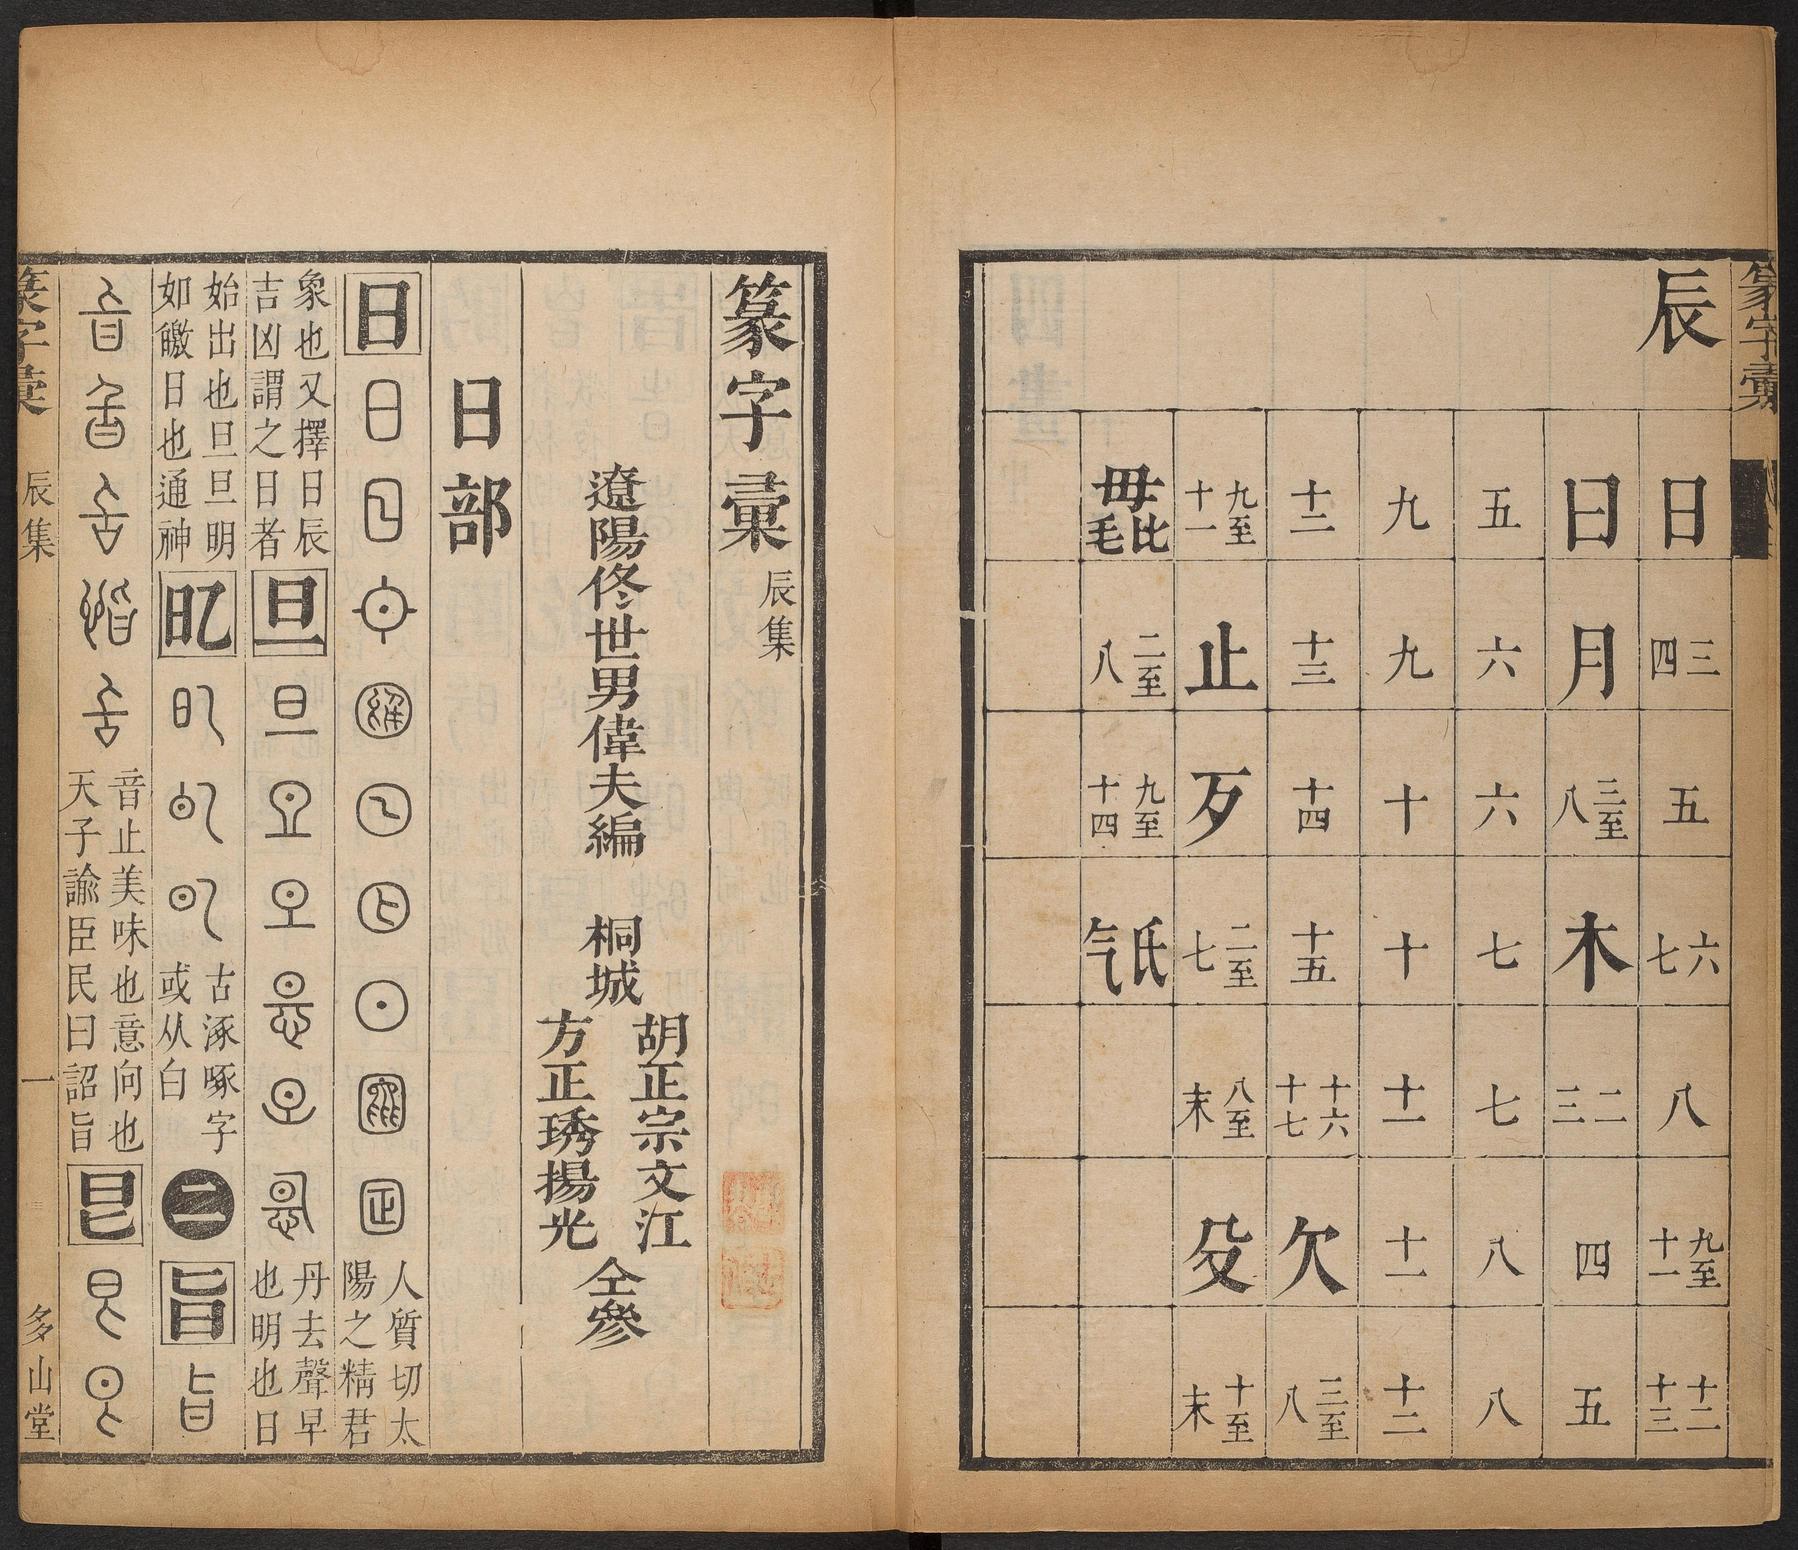 篆字彙
辰
日
三四
五
六七
八
九至十一
十二十三
曰
月
三至八
木
二三
四
五
五
六
六
七
七
八
八
九
九
十
十
十一
十一
十二
十二
十三
十四
十五
十六十七
欠
三至八
九至十一
止
歹
二至七
八至末
殳
十至末
毋比毛
二至八
九至十四
氏气
篆字彙 辰集
遼陽佟世男偉夫編 桐城 胡正宗文江 方正琇揚光 仝參
日部
日 人質切太陽之精君
象也又擇日辰吉凶謂之日者 旦 丹去聲早也明也日
始出也旦旦明如皦日也通神 㫐 古涿啄字或从白 二 旨
音止美味也意向也天子諭臣民曰詔旨
篆字彙 辰集 一 多山堂